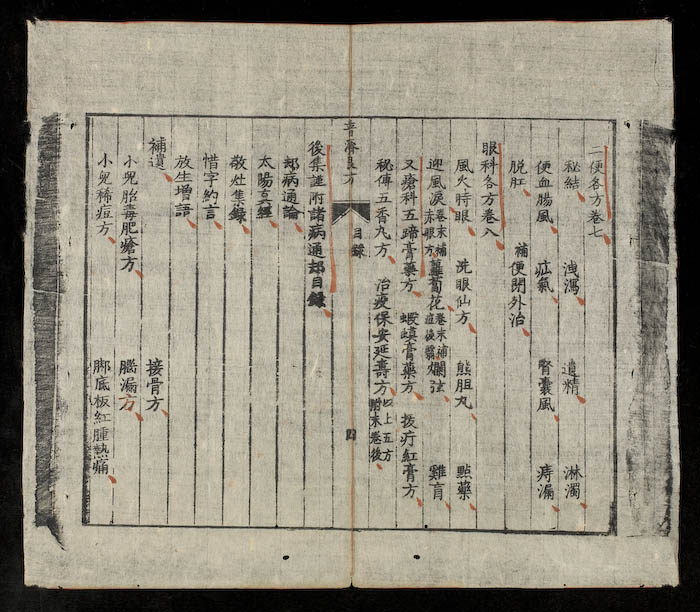 二便各方卷七
秘結 洩瀉 遺精 淋濁
便血腸風 疝氣 腎囊風 痔漏
脱肛 補便閉外治
眼科各方卷八
風火時眼 洗眼仙方 熊胆丸 點藥
迎風淚 卷末補赤眼方 蘿蔔花 卷末補痘後翳 爛弦 雞肓
又瘡科五蹄膏藥方 蝦蟆膏藥方 拔疔紅膏方
秘傳五香丸方 治瘦保安延壽方 以上五方附末卷後
普濟良方 目錄 四
後集註附諸病通却目錄
却病通論
太陽真經
敬灶集錄
惜字約言
放生增語
補遺 接骨方
小兒胎毒肥瘡方 腦漏方
小兒稀痘方 脚底板紅腫熱痛